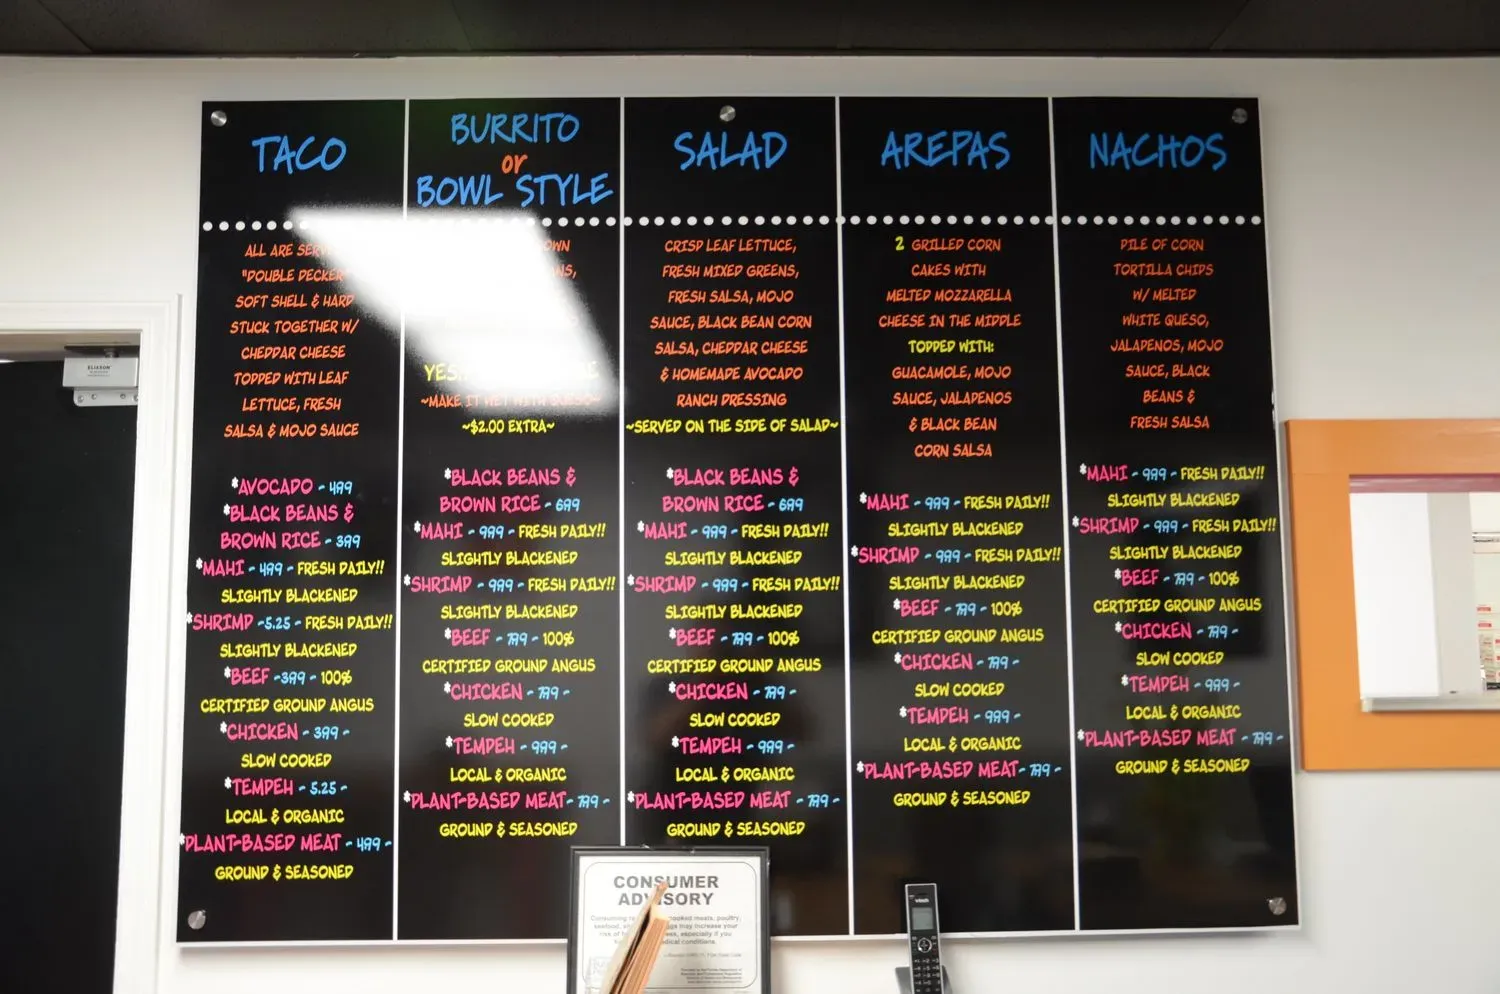 TACO
ALL ARE
"DOUBLE DECKER"
SOFT SHELL & HARD
STUCK TOGETHER W/
CHEDDAR CHEESE
TOPPED WITH LEAF
LETTUCE, FRESH
SALSA & MOJO SAUCE
*AVOCADO - 4.99
*BLACK BEANS &
BROWN RICE - 3.99
*MAHI - 4.99 - FRESH DAILY!!
SLIGHTLY BLACKENED
*SHRIMP -5.25 - FRESH DAILY!!
SLIGHTLY BLACKENED
*BEEF -3.99 - 100%
CERTIFIED GROUND ANGUS
*CHICKEN - 3.99 -
SLOW COOKED
*TEMPEH - 5.25 -
LOCAL & ORGANIC
*PLANT-BASED MEAT - 4.99 -
GROUND & SEASONED
BURRITO
or
BOWL STYLE
~MAKE IT WET WITH QUESO~
~$2.00 EXTRA~
*BLACK BEANS &
BROWN RICE - 6.99
*MAHI - 9.99 - FRESH DAILY!!
SLIGHTLY BLACKENED
*SHRIMP - 9.99 - FRESH DAILY!!
SLIGHTLY BLACKENED
*BEEF - 7.99 - 100%
CERTIFIED GROUND ANGUS
*CHICKEN - 7.99 -
SLOW COOKED
*TEMPEH - 9.99 -
LOCAL & ORGANIC
*PLANT-BASED MEAT - 7.99 -
GROUND & SEASONED
SALAD
CRISP LEAF LETTUCE,
FRESH MIXED GREENS,
FRESH SALSA, MOJO
SAUCE, BLACK BEAN CORN
SALSA, CHEDDAR CHEESE
& HOMEMADE AVOCADO
RANCH DRESSING
~SERVED ON THE SIDE OF SALAD~
*BLACK BEANS &
BROWN RICE - 6.99
*MAHI - 9.99 - FRESH DAILY!!
SLIGHTLY BLACKENED
*SHRIMP - 9.99 - FRESH DAILY!!
SLIGHTLY BLACKENED
*BEEF - 7.99 - 100%
CERTIFIED GROUND ANGUS
*CHICKEN - 7.99 -
SLOW COOKED
*TEMPEH - 9.99 -
LOCAL & ORGANIC
*PLANT-BASED MEAT - 7.99 -
GROUND & SEASONED
AREPAS
2 GRILLED CORN
CAKES WITH
MELTED MOZZARELLA
CHEESE IN THE MIDDLE
TOPPED WITH:
GUACAMOLE, MOJO
SAUCE, JALAPENOS
& BLACK BEAN
CORN SALSA
*MAHI - 9.99 - FRESH DAILY!!
SLIGHTLY BLACKENED
*SHRIMP - 9.99 - FRESH DAILY!!
SLIGHTLY BLACKENED
*BEEF - 7.99 - 100%
CERTIFIED GROUND ANGUS
*CHICKEN - 7.99 -
SLOW COOKED
*TEMPEH - 9.99 -
LOCAL & ORGANIC
*PLANT-BASED MEAT - 7.99 -
GROUND & SEASONED
NACHOS
PILE OF CORN
TORTILLA CHIPS
W/ MELTED
WHITE QUESO,
JALAPENOS, MOJO
SAUCE, BLACK
BEANS &
FRESH SALSA
*MAHI - 9.99 - FRESH DAILY!!
SLIGHTLY BLACKENED
*SHRIMP - 9.99 - FRESH DAILY!!
SLIGHTLY BLACKENED
*BEEF - 7.99 - 100%
CERTIFIED GROUND ANGUS
*CHICKEN - 7.99 -
SLOW COOKED
*TEMPEH - 9.99 -
LOCAL & ORGANIC
*PLANT-BASED MEAT - 7.99 -
GROUND & SEASONED
ELIASON
CONSUMER
ADVISORY
Consuming cooked meats, poultry,
seafood, may increase your
risk of especially if you
medical conditions.
vtech